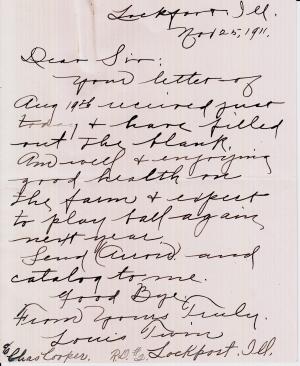 Lockport, Ill.
Nov 25, 1911.
Dear Sir:
Your letter of
Aug 19th received just
today & have filled
out the blank.
Am well & enjoying
good health on
the farm & expect
to play ball again
next year.
Send and
catalog to me.
Good Bye,
From Yours Truly.
Louis
% Chas Cooper. R.D. # Lockport, Ill.